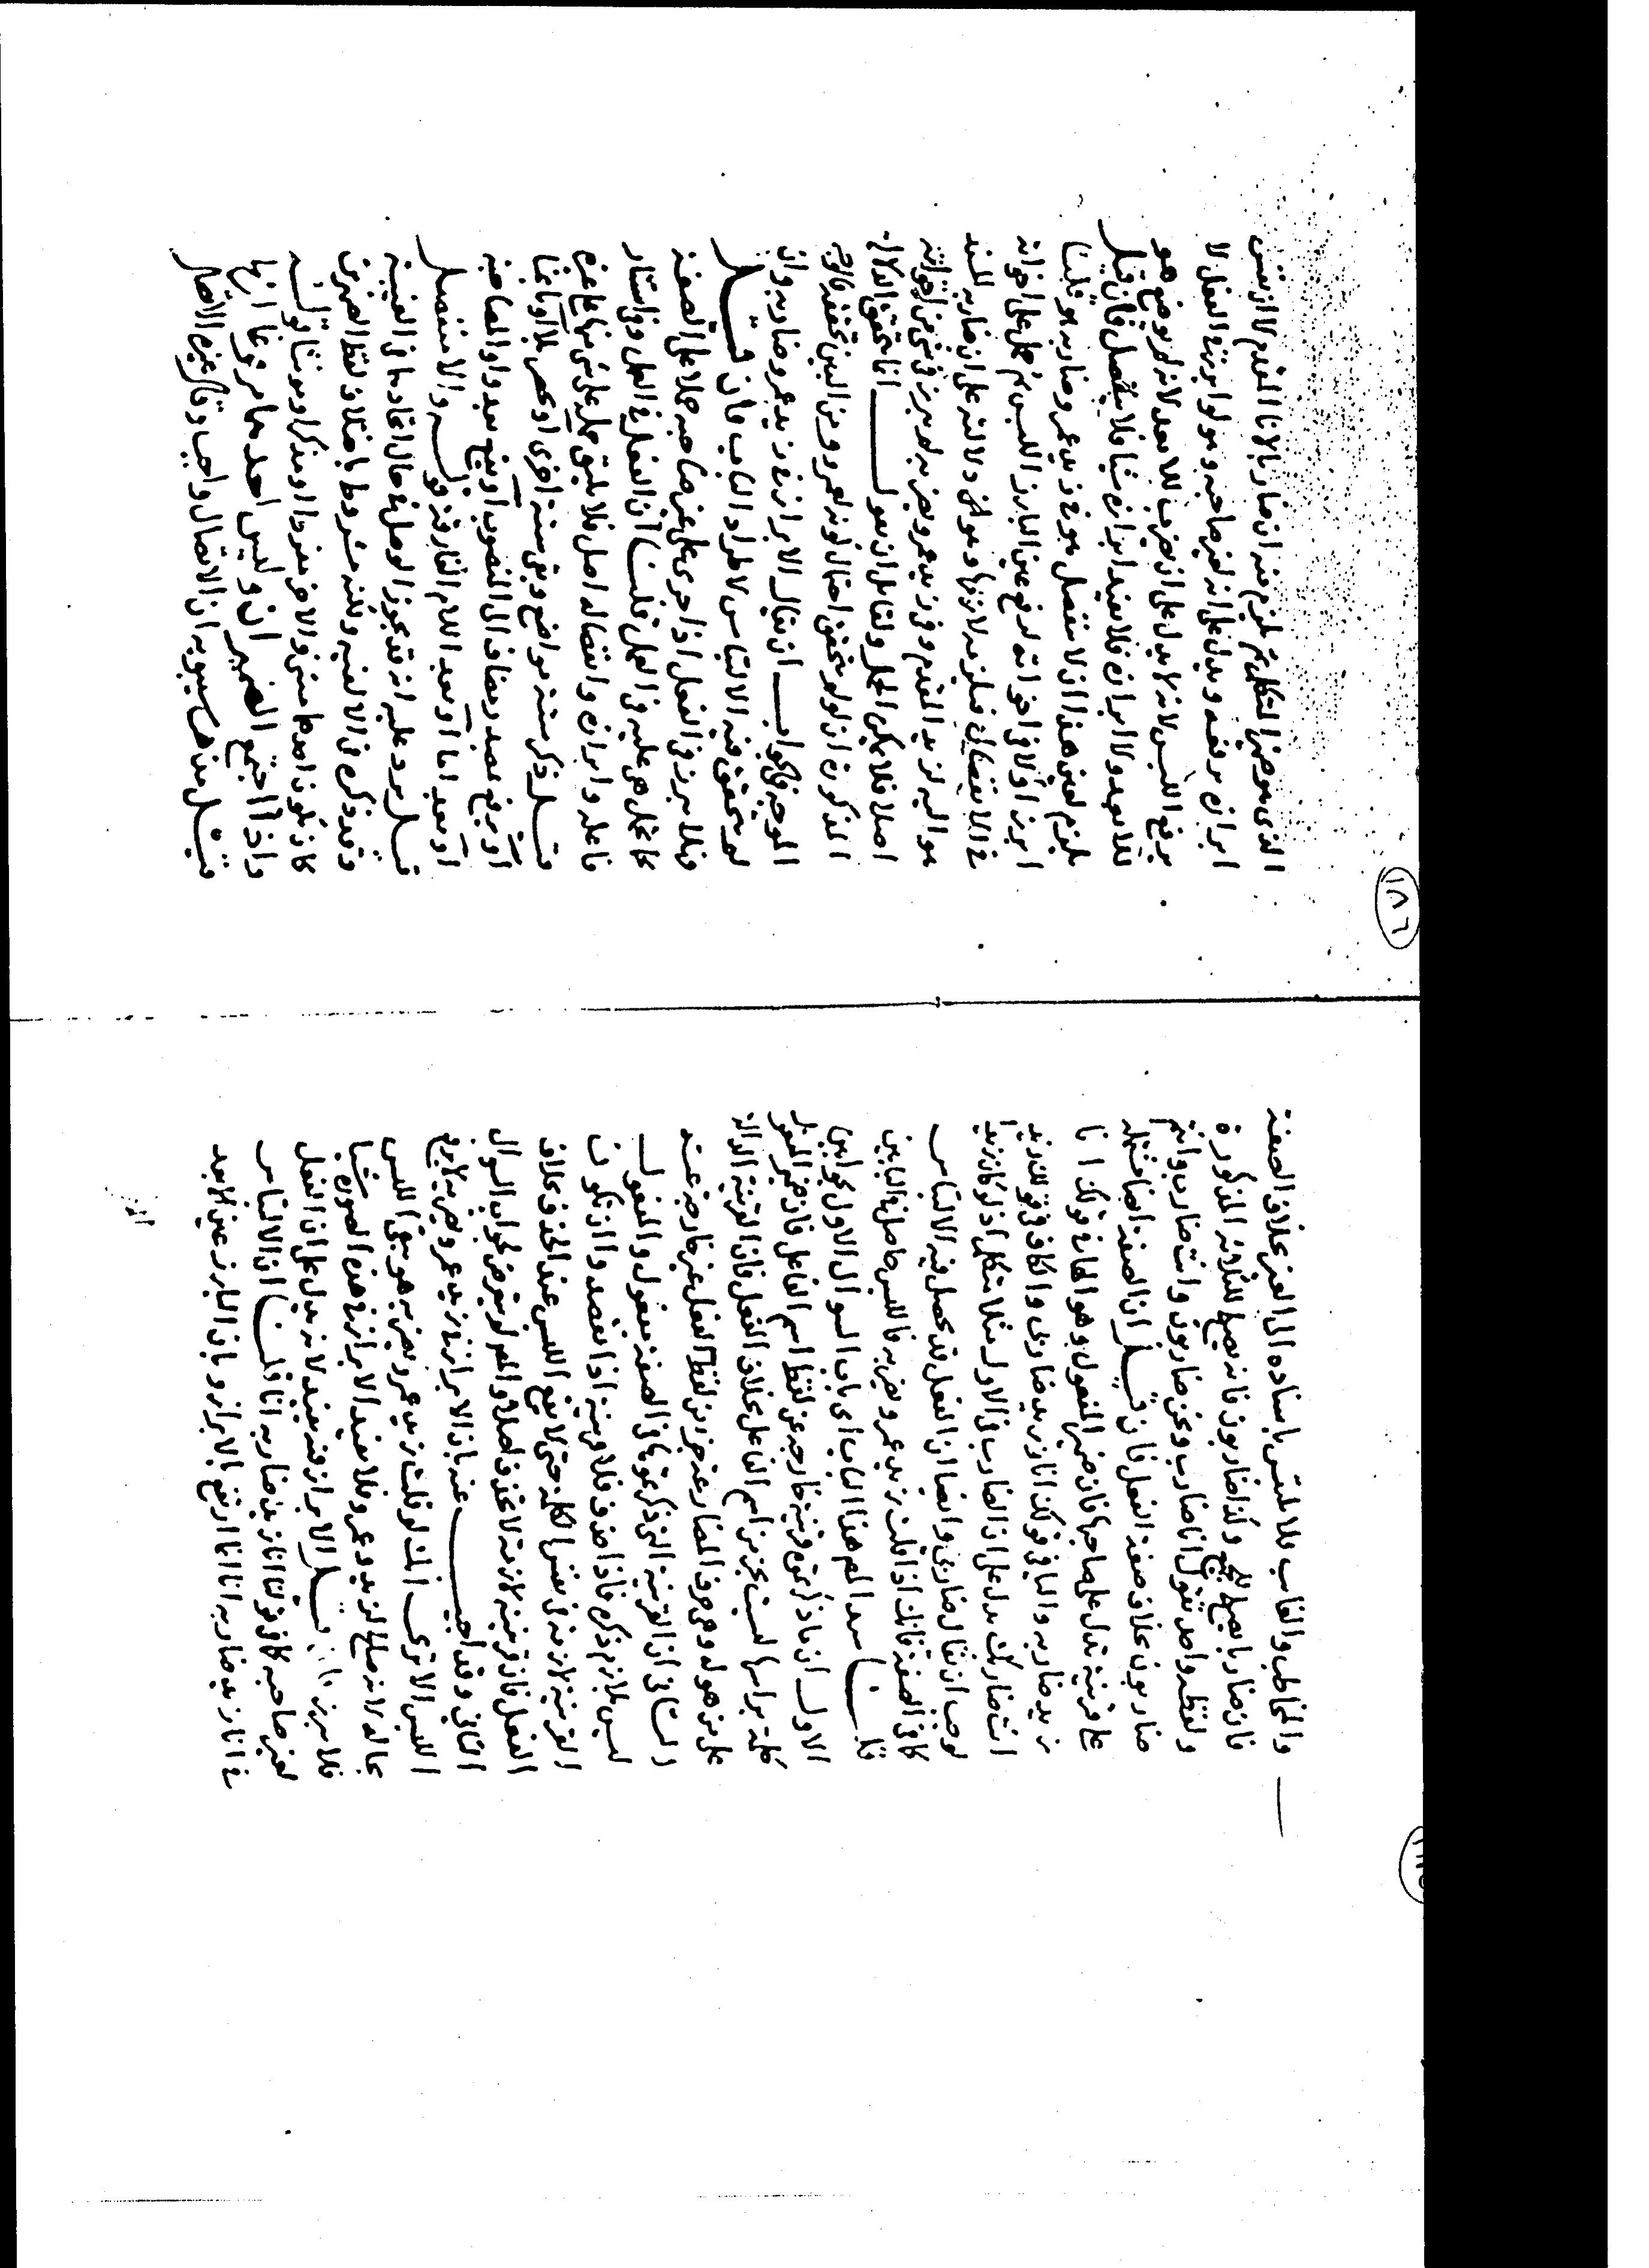 والمخاطب والغائب فلا يلتبس باسناده الى الغير بخلاف الصفة
فان ضاربا يصلح للجميع وكذا ضاربون فانه يصلح للثلاثة المذكورة
ولفظه واحد تقول انا ضارب ونحن ضاربون وانت ضارب وانتم
ضاربون بخلاف صفة الفعل فان قيل ان الصفة ايضا مشتملة
على قرينة تدل على صاحبها فان ضمير المفعول وهو الهاء في قولك انا
زيد ضاربه والياء في قولك انا زيد ضاربي والكاف في قولك زيد
انت ضاربك يدل على ان الضارب في الاول مثلا متكلم اذ لو كان زيدا
لوجب ان يقال ضاربي وايضا ان الفعل قد يحصل فيه الالتباس
كما في الصفة فانك اذا قلت زيد عمرو يضربه فاللبس حاصل في البابين
قلنا هذا الباب اى باب السوال الاول بجوابين
الاول ان ما ذكرتموه قرينة خارجة عن لفظ اسم الفاعل فان ضمير المفعول
كلمة براسها ليست بجزء من اسم الفاعل بخلاف الفعل فان القرينة الدالة
على من هو له وهي حرف المضارعة جزء من لفظ الفعل غير خارجة عنه
والثاني ان القرينة التي ذكرتموها في الصفة مفعول والمفعول
ليس بلازم ذكره فاذا حذف فلا قرينة اذا القصد ان تكون
القرينة لازمة في نفس الكلمة حتى لا يقع اللبس عند الحذف بخلاف
الفعل فان قرينته لازمة لا تحذف اصلا والمص لم يتعرض لجواب السوال
الثاني وقد اجيب عنه بان الابراز في زيد عمرو يضربه لا يرفع
اللبس الا ترى انك لو قلت زيد عمرو يضربه هو بقي اللبس
بحاله لانه صالح لزيد وعمرو فلا يفيد الابراز في هذه الصورة شيئا
فلا يبرز قيل الابراز فيه يفيد لانه يدل على ان الفعل
لغير صاحبه كما في قولنا انا زيد ضاربه انا قلت ان الالتباس
في انا زيد ضاربه انا ارتفع بالابراز وبان البارز عين لاحد
١٨٦
الذي هو ضمير المتكلم ثم يلزم منه ان ضاربا لانا المقدم لا لزيد
ابرازه يرفعه ويدل على انه لغير صاحبه وهو لو ابرز في الفعل لا
يرفع اللبس لانه لا يدل على ان يضرب للابعد لانه لم يوضع هو
للابعد ولا ابرازه فلا يفيد ابرازه شيئا فلا ينفصل فان قيل
يلزم لعين هذا ان لا ينفصل هو في زيد عمرو ضاربه هو قلنا
ابرز اولا في اخواته لرفع عين البارز اللبس ثم حمل على اخواته
في الانفصال فيلزمه لازمها وهو دلالته على ان ضاربه المسند
هو اليه لزيد المقدم وفي زيد عمرو يضربه لم يبرز في شيء من اخواته
اصلا فلا يمكن الحمل ولقائل ان يقول انا تحقق الدلالة
المذكورة ان لو لم تحقق احتمال كونه لعمرو ومن البين تحققه فالوجه
الموجه في الجواب ان يقال الابراز في زيد عمرو ضاربه وان
لم يتحقق فيه الالتباس لاطراد الباب فان قيل
فلما يبرز في الفعل اذا جرى على غير صاحبه حملا على الصفة
كما تحمل هي عليه في العمل قلنا ان الفعل في العمل وفي استتار
فاعله وابرازه واتصاله اصل فلا يليق حمله على شيء منها على غيره
قيل ذكر ستة مواضع وبقي ستة اخرى او بانما
او يرفع بمصدر مضاف الى المنصوب او يقع بعد واو المصاحبة
او بعد اما او بعد اللام الفارقة قوله والا متصل
قيل يرد عليه انه قد يجوز الوصل في حال اتحادهما في الغيبة
وقد ذكره في الالفية ولكنه مشروط باختلاف لفظ الضميرين
كان يكون احدهما مثنى والاخر مفردا او مذكرا ومونثا قوله
واذا اجتمع الضميران وليس احدهما مرفوعا
قيل مذهب سيبويه ان الاتصال واجب وذكر غيره